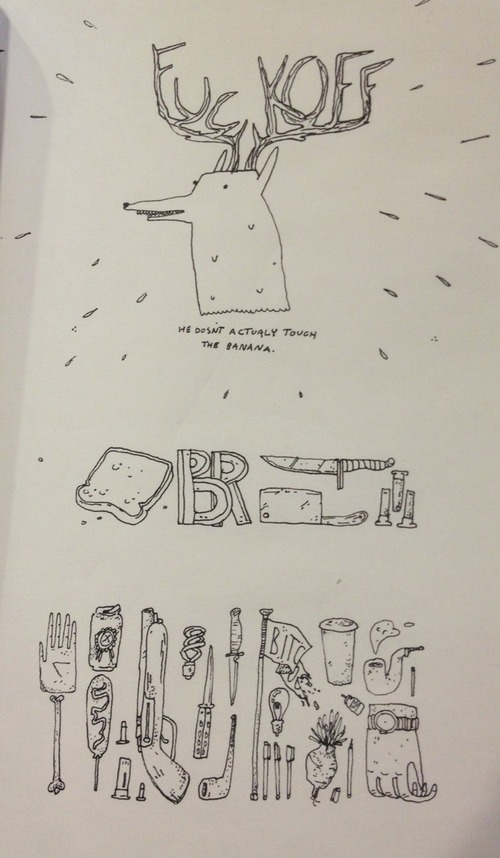 FUCKOFF
HE DOSN'T ACTUALY TOUCH
THE BANANA.
BR